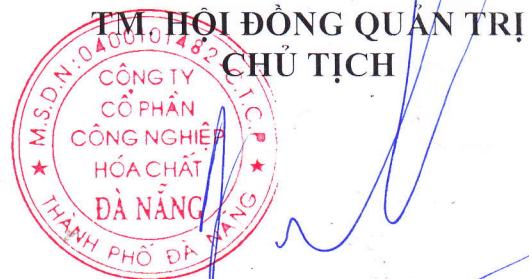 TM. HỘI ĐỒNG QUẢN TRỊ
CHỦ TỊCH
M.S.D.N:0400101482-C.T.C.P
CÔNG TY
CỔ PHẦN
CÔNG NGHIỆP
HÓA CHẤT
ĐÀ NẴNG
THÀNH PHỐ ĐÀ NẴNG